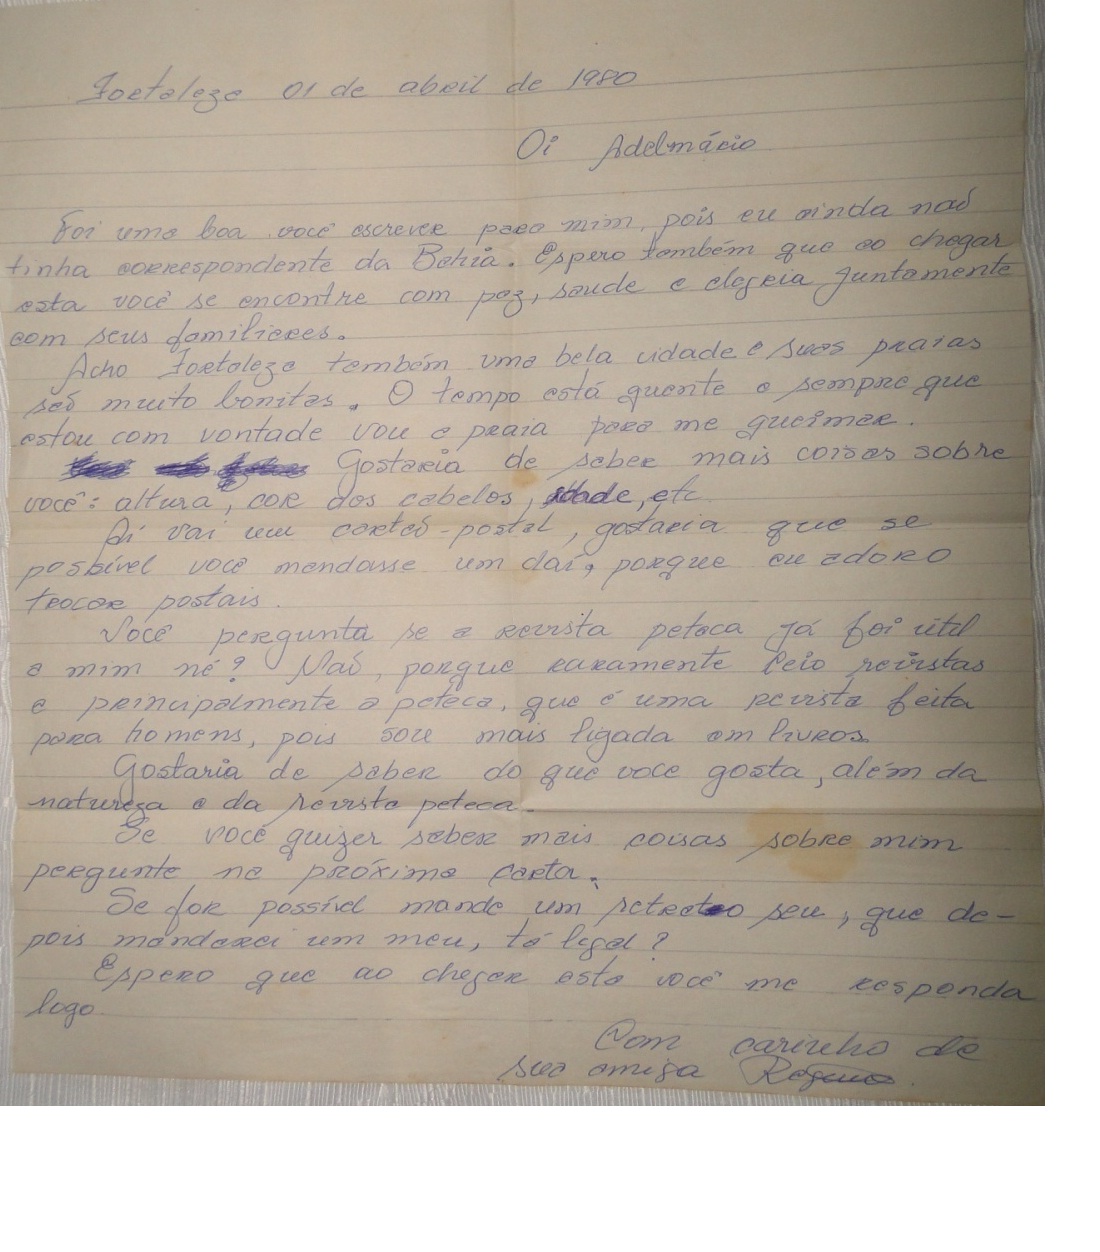 Fortaleza 01 de abril de 1980
Oi Adelmácio
Foi uma boa você escrever para mim, pois eu ainda naõ
tinha correspondente da Bahia. Espero também que ao chegar
esta você se encontre com paz, saude e alegria juntamente
com seus familiares.
Acho Fortaleza também uma bela cidade e suas praias
saõ muito bonitas. O tempo está quente e sempre que
estou com vontade vou a praia para me queimar.
Gostaria de saber mais coisas sobre
você: altura, cor dos cabelos, idade, etc
Ai vai um cartaõ-postal, gostaria que se
possível você mandasse um daí, porque eu adoro
trocar postais.
Você pergunta se a revista peteca já foi útil
a mim né? Naõ, porque raramente leio revistas
e principalmente a peteca, que é uma revista feita
para homens, pois sou mais ligada em livros.
Gostaria de saber do que voce gosta, além da
natureza e da revista peteca.
Se você quizer saber mais coisas sobre mim
pergunte na próxima carta.
Se for possível mande um retrato seu, que de-
pois mandarei um meu, tá legal?
Espero que ao chegar esta você me responda
logo
Com carinho de
sua amiga